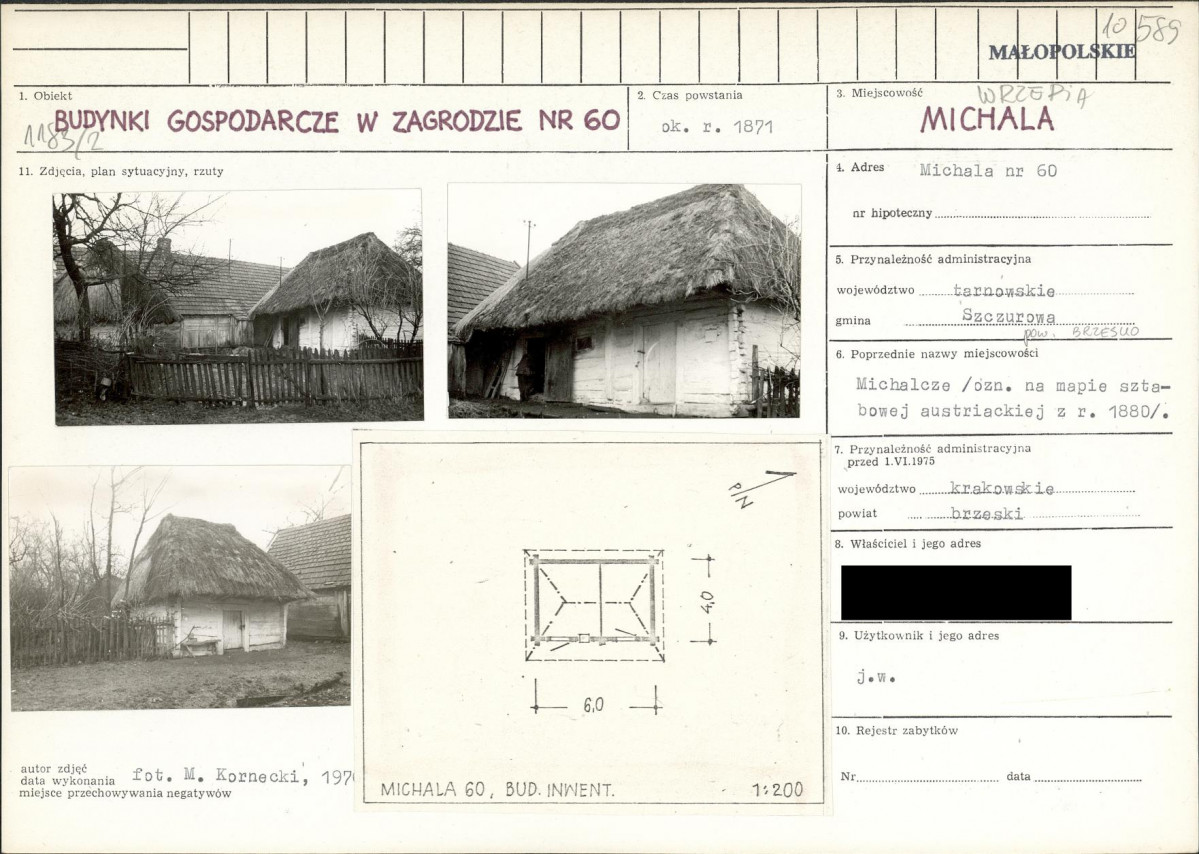 10 589
MAŁOPOLSKIE
1. Obiekt
BUDYNKI GOSPODARCZE W ZAGRODZIE NR 60
1183/2
2. Czas powstania
ok. r. 1871
3. Miejscowość
WRZĘPIA
MICHALA
11. Zdjęcia, plan sytuacyjny, rzuty
4. Adres Michala nr 60
nr hipoteczny
5. Przynależność administracyjna
województwo tarnowskie
gmina Szczurowa
pow. BRZESKO
6. Poprzednie nazwy miejscowości
Michalcze /ozn. na mapie szta-
bowej austriackiej z r. 1880/.
7. Przynależność administracyjna
przed 1.VI.1975
województwo krakowskie
powiat brzeski
8. Właściciel i jego adres
9. Użytkownik i jego adres
j.w.
10. Rejestr zabytków
Nr. data
PŃ
4,0
6,0
MICHALA 60, BUD. INWENT. 1:200
autor zdjęć
data wykonania fot. M. Kornecki, 197
miejsce przechowywania negatywów